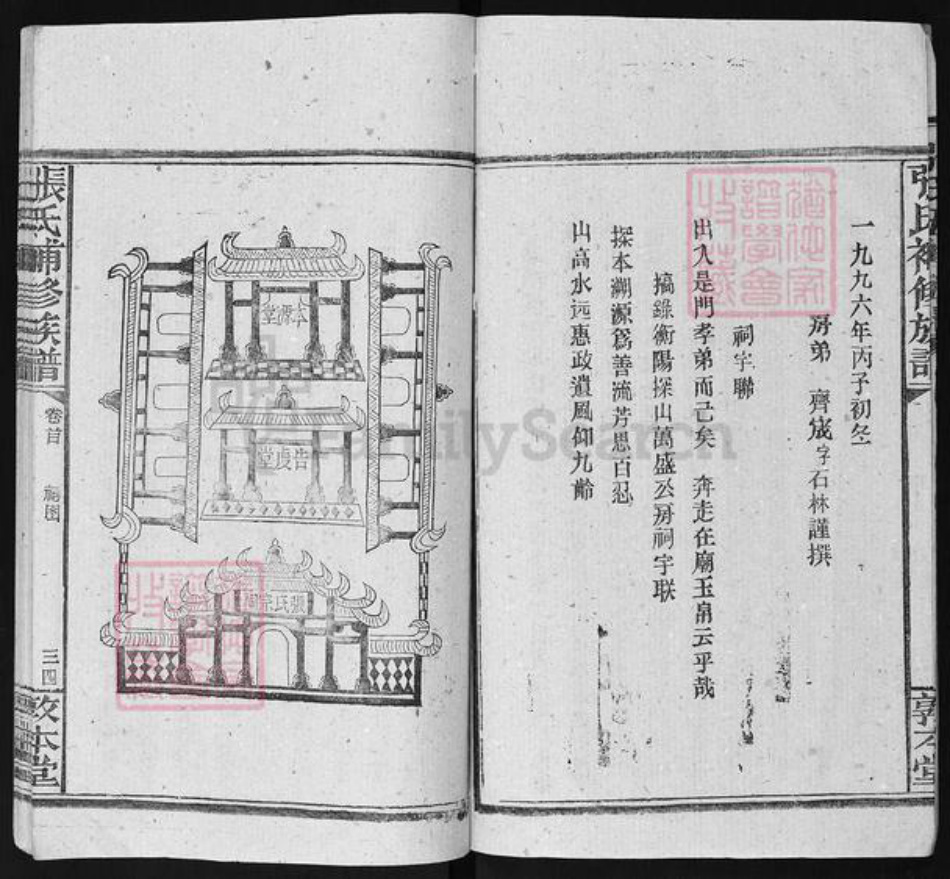 張氏補修族譜
一九九六年丙子初冬
房弟 齊宬字石林謹撰
祠宇聯
出入是門孝弟而己矣 奔走在廟玉帛云乎哉
摘錄衡陽探山萬盛公房祠宇联
探本溯源爲善流芳思百忍
山高水远惠政遺風仰九齡
敦本堂
本源堂
告虔堂
張氏宗祠
張氏補修族譜
卷首
祠图
三四
敦本堂
FamilySearch